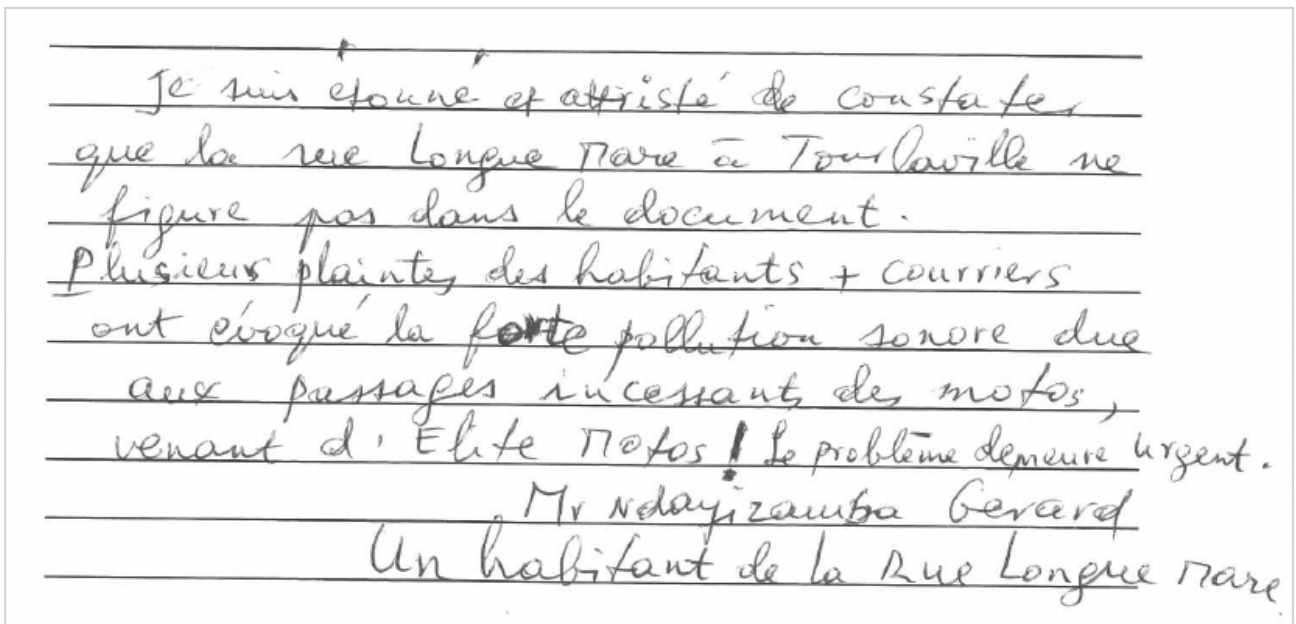 Je suis étonné et attristé de constater
que la rue Longue Mare à Tourlaville ne
figure pas dans le document.
Plusieurs plaintes des habitants + courriers
ont évoqué la forte pollution sonore due
aux passages incessants des motos,
venant d'Elite Motos ! Le problème demeure urgent.
Mr Ndayizamba Gerard
Un habitant de la Rue Longue Mare